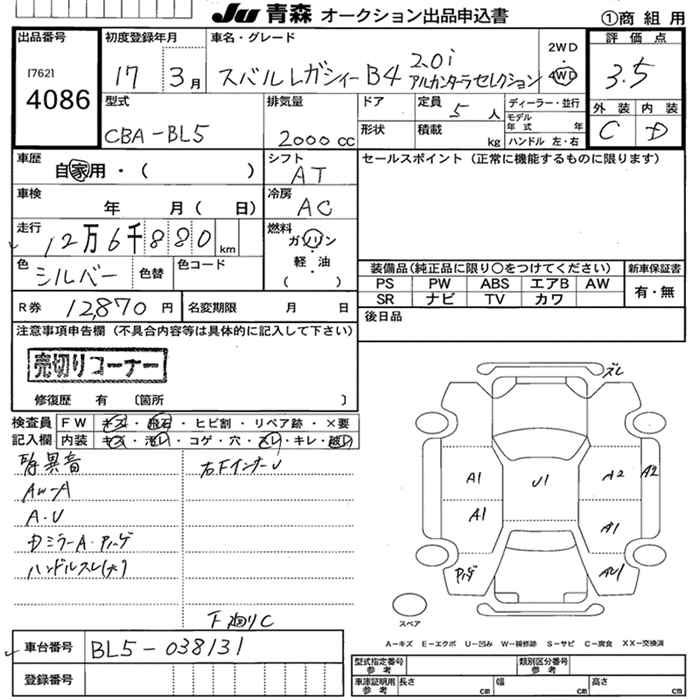 JU 青森 オークション出品申込書 ①商組用
出品番号
[762]
4086
初度登録年月
17 3月
車名・グレード
スバルレガシィーB4 2.0i
アルカンターラセレクション
2WD
・
4WD
評価点
3.5
外装 内装
C D
型式
CBA-BL5
排気量
2000cc
ドア
形状
定員 5人
積載 kg
ディーラー・並行
モデル年式 年
ハンドル 左・右
車歴
自家用・( )
シフト
AT
車検
年 月( 日)
冷房
AC
走行
12万6千880km
燃料
ガソリン
・
軽・油
( )
色
シルバー
色替
色コード
R券 12,870円
名変期限 月 日
セールスポイント(正常に機能するものに限ります)
装備品(純正品に限り○をつけてください)
新車保証書
PS PW ABS エアB AW
SR ナビ TV カワ
有・無
後日品
注意事項申告欄(不具合内容等は具体的に記入して下さい)
売切りコーナー
修復歴 有 〔箇所 〕
検査員記入欄
FW キズ・飛石・ヒビ割・リペア跡・×要
内装 キズ・汚レ・コゲ・穴・スレ・キレ・破レ
異音
AW-A
A・U
DミラーA・ハゲ
ハンドルスレ(大)
右FインナーU
下廻りC
車台番号 BL5-038131
登録番号
ズレ
A1
U1
A2
A2
A1
A1
ハゲ
AU1
スペア
A－キズ E－エクボ U－凹み W－補修跡 S－サビ C－腐食 XX－交換済
型式指定番号 参考
類別区分番号 参考
車庫証明用 参考
長さ cm
幅 cm
高さ cm